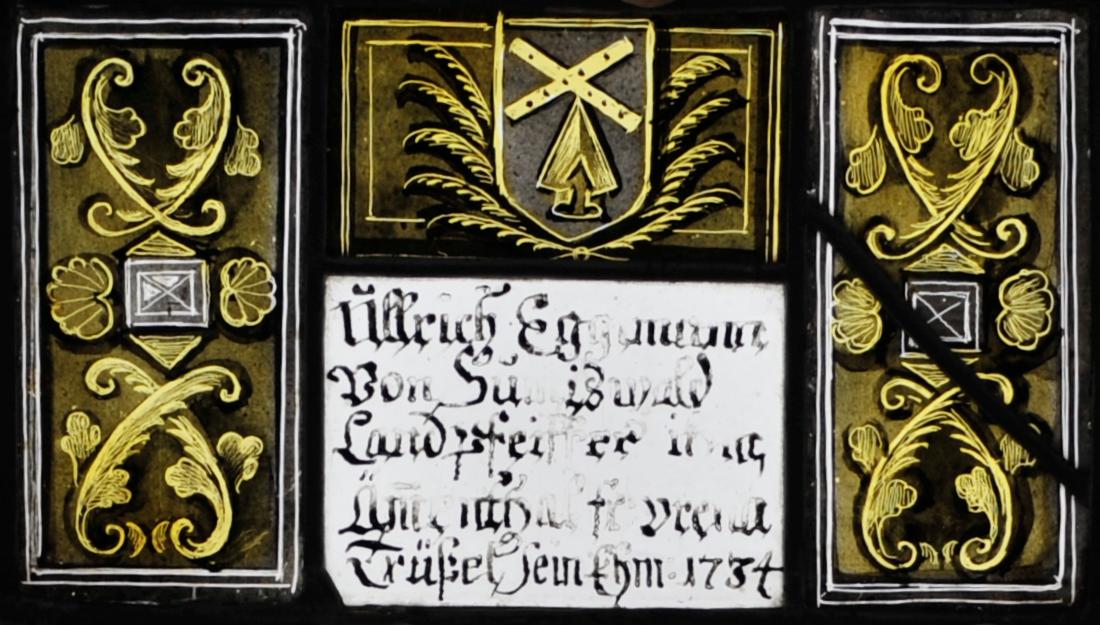 Ullrich Eggimann
Von Sumiswald
Landpfeiffer im
Ämenthal fr vrena
Trüßel Sein Ehm. 1734